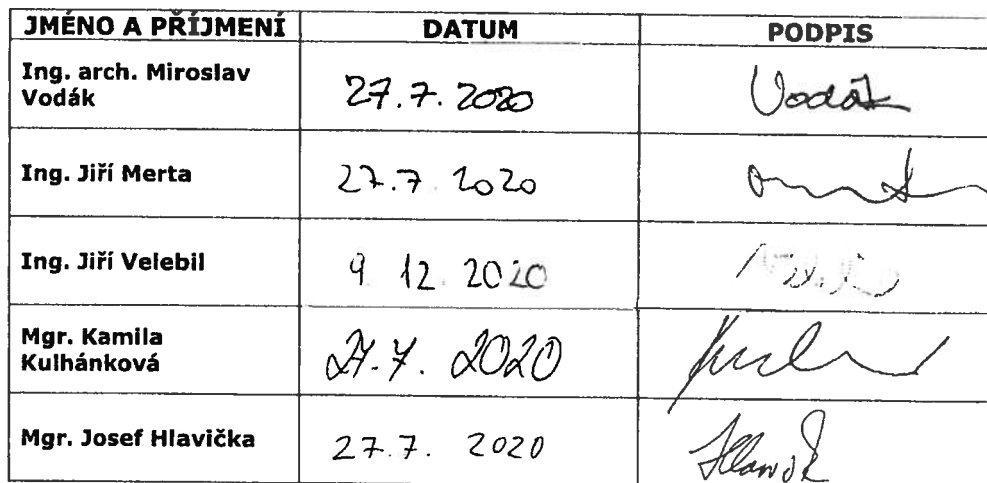 JMÉNO A PŘÍJMENÍ DATUM PODPIS
Ing. arch. Miroslav
Vodák 27.7.2020 Vodák
Ing. Jiří Merta 27.7 2020
Ing. Jiří Velebil 9 12 2020
Mgr. Kamila
Kulhánková 27.7. 2020
Mgr. Josef Hlavička 27.7. 2020